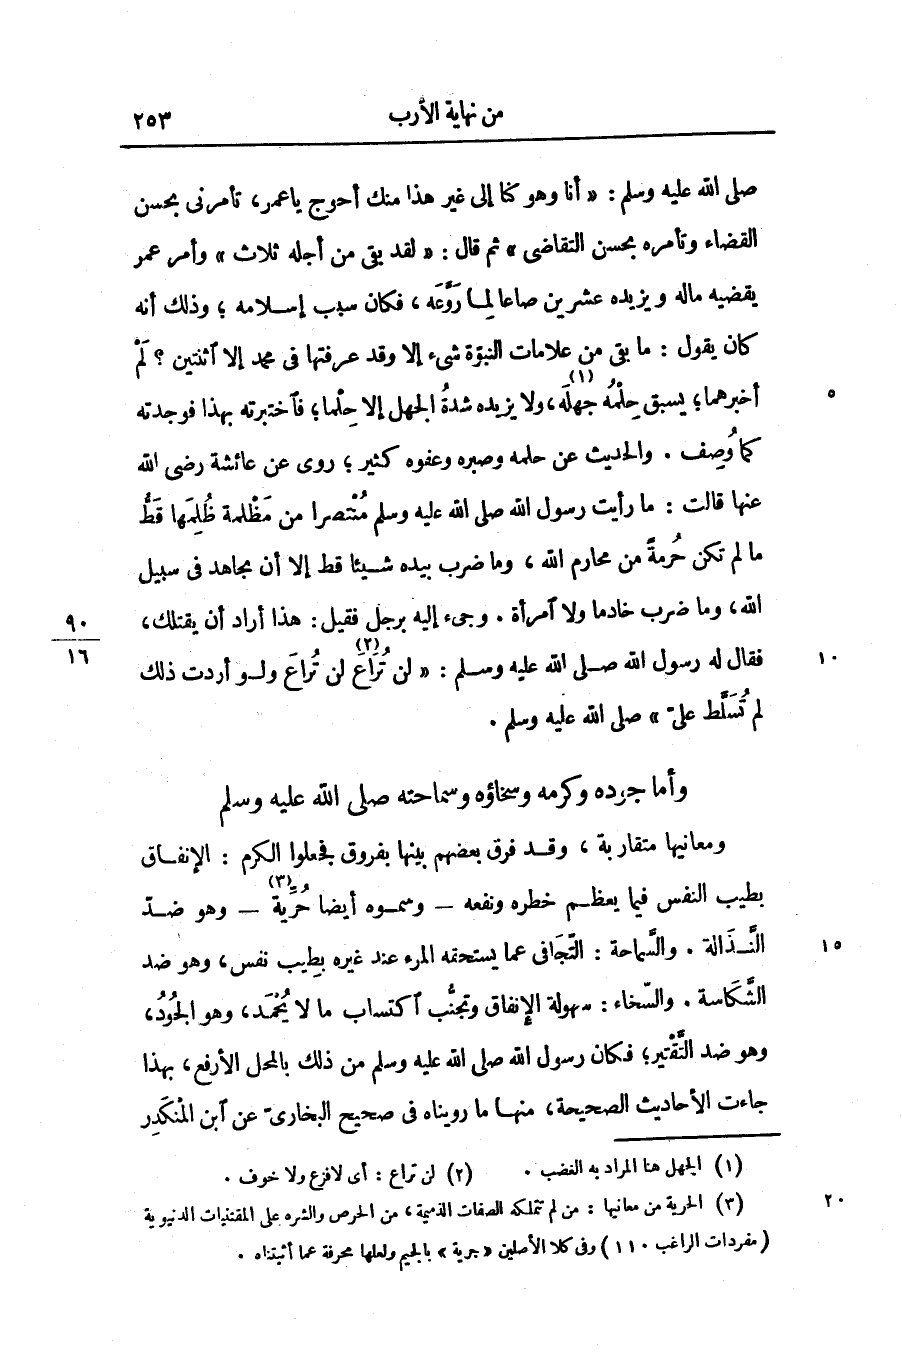 من نهاية الأرب ٢٥٣
صلى الله عليه وسلم : « أنا وهو كنا إلى غير هذا منك أحوج ياعمر، تأمرنى بحسن
القضاء وتأمره بحسن التقاضى » ثم قال : « لقد بقى من أجله ثلاث » وأمر عمر
يقضيه ماله ويزيده عشرين صاعا لِمَا رَوَّعَه ، فكان سبب إسلامه ؛ وذلك أنه
كان يقول : ما بقى من علامات النبوّة شىء إلا وقد عرفتها فى محمد إلا آثنتين ؟ لَمْ
أخبرهما؛ يسبق حِلْمُه جهلَه(١)، ولا يزيده شدةُ الجهل إلا حِلْما؛ فآختبرته بهذا فوجدته ٥
كما وُصِف . والحديث عن حلمه وصبره وعفوه كثير ؛ روى عن عائشة رضى الله
عنها قالت : ما رأيت رسول الله صلى الله عليه وسلم مُنْتصرا من مَظْلمة ظُلِمَها قَطُّ
ما لم تكن حُرمةً من محارم الله ، وما ضرب بيده شيئا قط إلا أن يجاهد فى سبيل
الله، وما ضرب خادما ولا آمرأة . وجىء إليه برجل فقيل : هذا أراد أن يقتلك، ٩٠
١٦
فقال له رسول الله صلى الله عليه وسلم : « لن تُرَاعَ(٢) لن تُراعَ ولو أردت ذلك ١٠
لم تُسَلَّط علىّ » صلى الله عليه وسلم .
وأما جوده وكرمه وسخاؤه وسماحته صلى الله عليه وسلم
ومعانيها متقاربة ، وقد فرق بعضهم بينها بفروق فجعلوا الكرم : الإنفاق
بطيب النفس فيما يعظم خطره ونفعه — وسموه أيضا حُرِّية(٣) — وهو ضدّ
النَّذالة . والسَّماحة : التّجَافى عما يستحقه المرء عند غيره بِطيب نفس، وهو ضد ١٥
الشَّكَاسة . والسّخاء : سهولة الإنفاق وتجنُّب آكتساب ما لا يُحْمَد، وهو الجُودُ،
وهو ضد التَّقْتير؛ فكان رسول الله صلى الله عليه وسلم من ذلك بالمحل الأرفع، بهذا
جاءت الأحاديث الصحيحة، منها ما رويناه فى صحيح البخارىّ عن آبن المْنكَدِر
(١) الجهل هنا المراد به الغضب . (٢) لن تراع : أى لا فزع ولا خوف .
(٣) الحرية من معانيها : من لم تتملكه الصفات الذميمة ، من الحرص والشره على المقتنيات الدنيوية ٢٠
(مفردات الراغب ١١٠) وفى كلا الأصلين « جرية » بالجيم ولعلها محرفة عما أثبتناه .